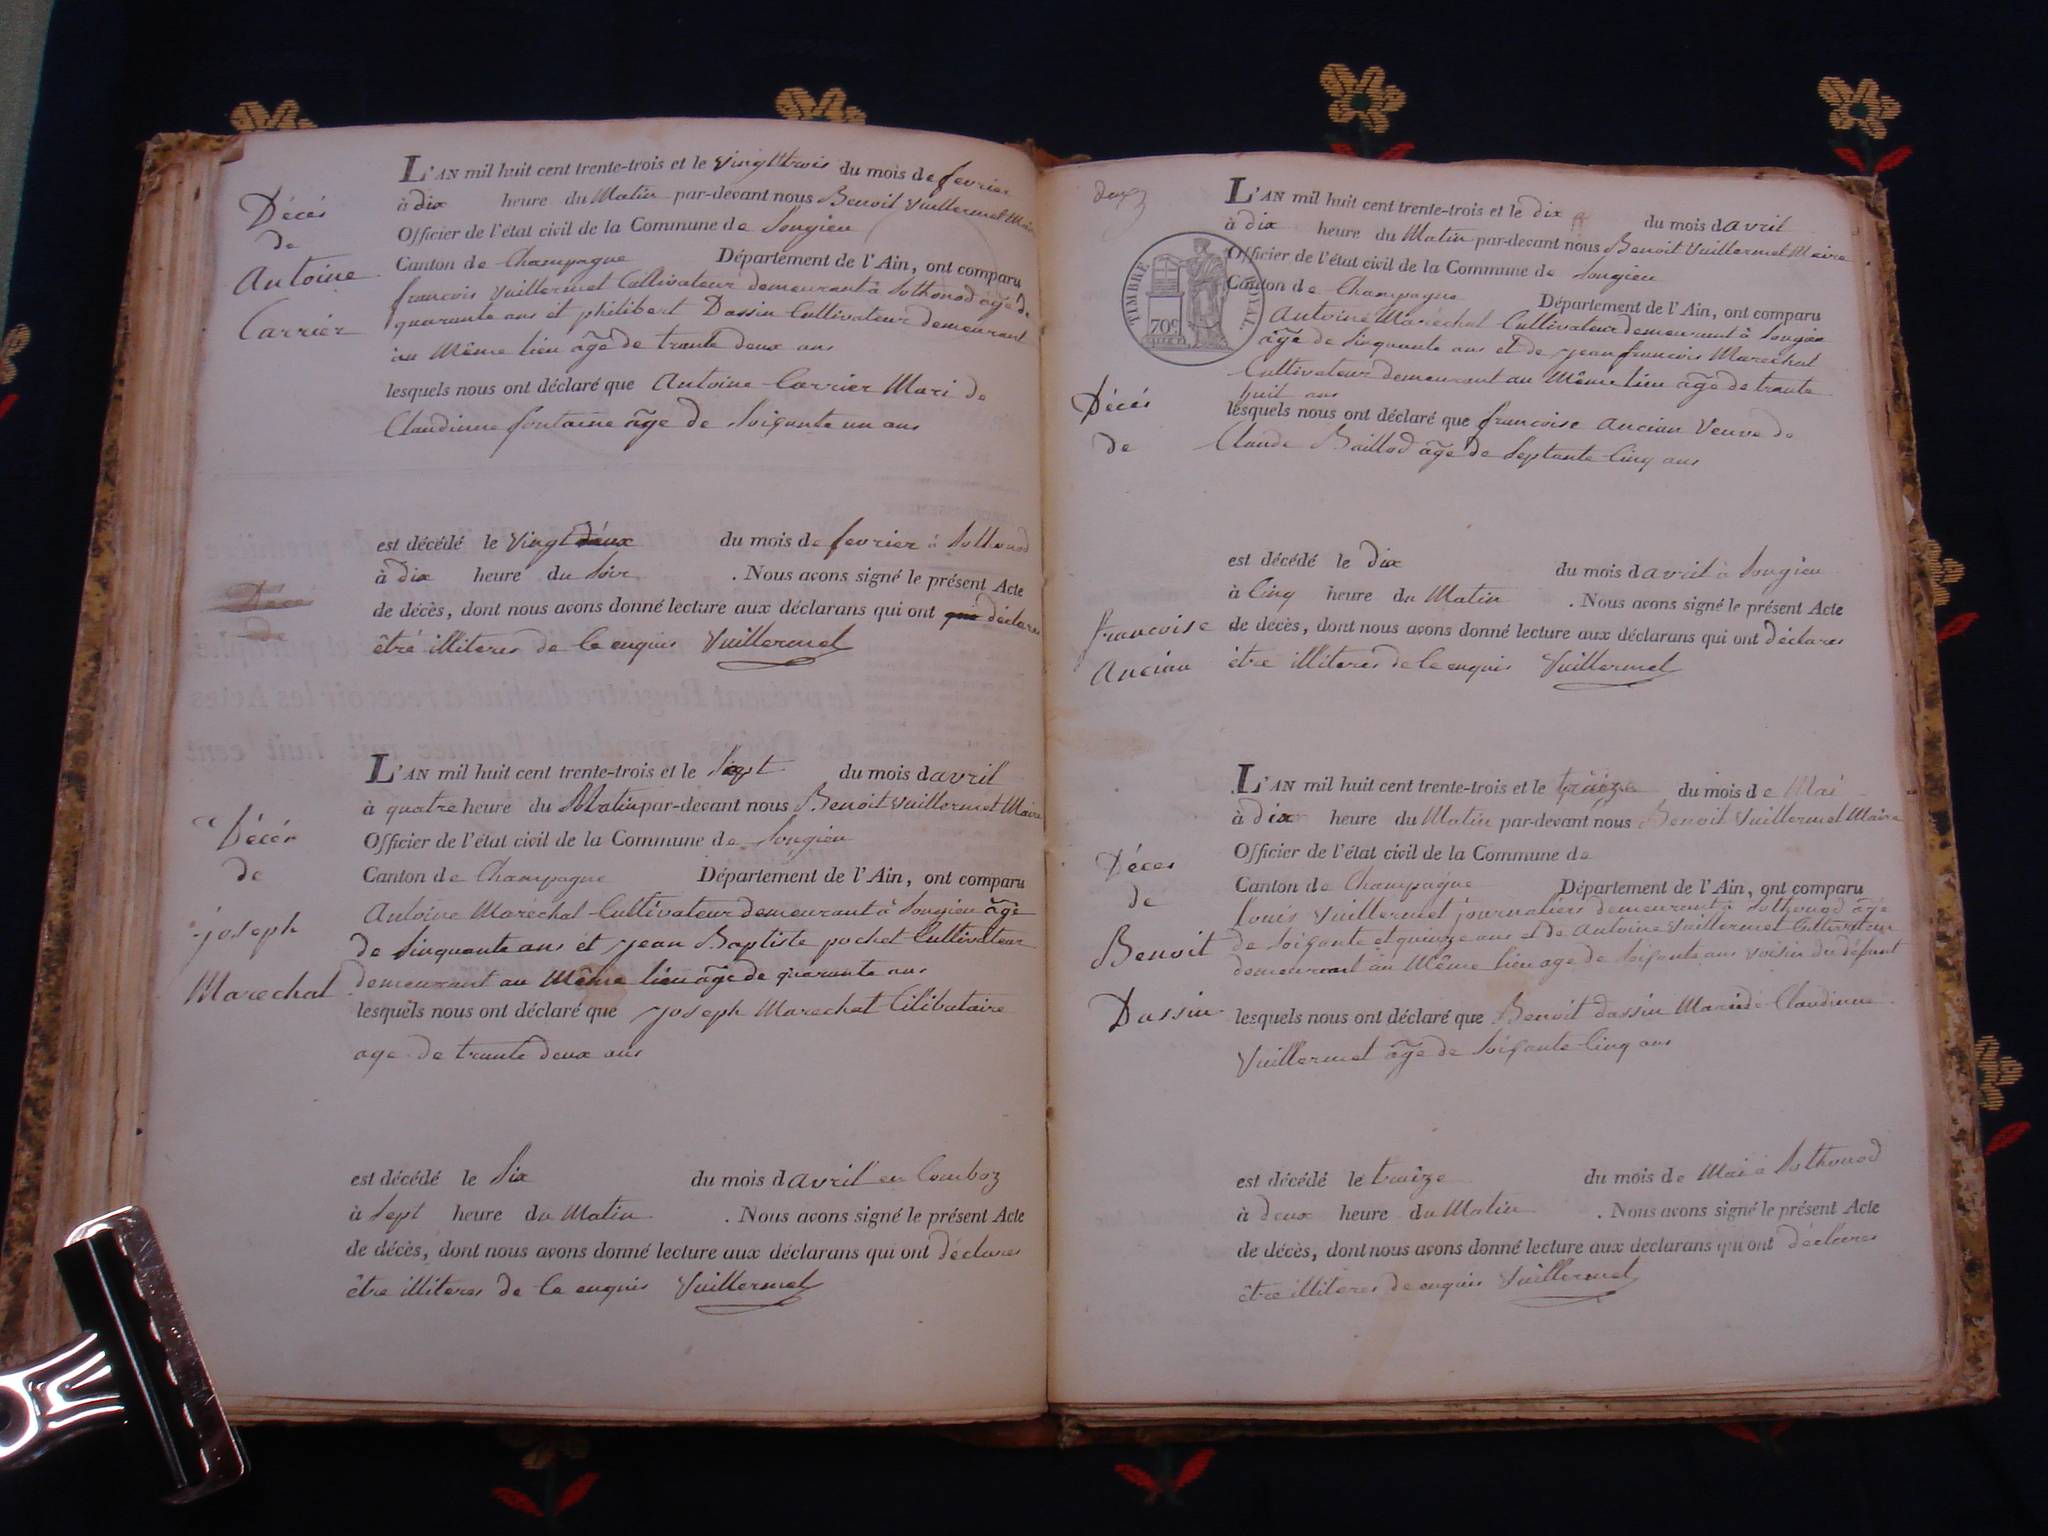 L'AN mil huit cent trente-trois et le vingttrois du mois de fevrier
à dix heure du Matin par-devant nous Benoit Vuillermet Maire
Officier de l'état civil de la Commune de Songieu
Canton de Champagne Département de l'Ain, ont comparu
francois Vuillermet Cultivateur demeurant à Sothonod agé de
quarante ans et philibert Dassin Cultivateur demeurant
au Même lieu âgé de trante deux ans
lesquels nous ont déclaré que Antoine Carrier Mari de
Claudinne fontaine âge de Soiçante un ans
Décés
de
Antoine
Carrier
est décédé le vingt deux du mois de fevrier à Sothonod
à dix heure du Soir . Nous avons signé le présent Acte
de décès, dont nous avons donné lecture aux déclarans qui ont qui déclares
être illiteres de le enquis Vuillermet
Décé
de
L'AN mil huit cent trente-trois et le Sept du mois d avril
à quatre heure du Matin par-devant nous Benoit Vuillermet Maire
Officier de l'état civil de la Commune de Songieu
Canton de Champagne Département de l'Ain, ont comparu
Antoine Maréchal Cultivateur demeurant à Songieu âgé
de Sinquante ans et jean Baptiste pochet Cultivateur
demeurant au Même lieu âge de quarante ans
lesquels nous ont déclaré que joseph Marechal Cilibataire
age de trante deux ans
Décér
de
joseph
Marechal
est décédé le Six du mois d avril en Comboz
à Sept heure du Matin . Nous avons signé le présent Acte
de décès, dont nous avons donné lecture aux déclarans qui ont déclares
être illiteres de le enquis Vuillermet
deux
TIMBRE ROYAL
70c
L'AN mil huit cent trente-trois et le dix du mois d avril
à dix heure du Matin par-devant nous Benoit Vuillermet Maire
Officier de l'état civil de la Commune de Songieu
Canton de Champagne Département de l'Ain, ont comparu
Antoine Maréchal Cultivateur demeurant à Songieu
âge de Sinquante ans et de jean francois Marechal
Cultivateur demeurant au Même lieu âge de trante
huit ans
lesquels nous ont déclaré que francoise Ancian Veuve de
Claude Baillod âge de Septante Cinq ans
Décés
de
francoise
Ancian
est décédé le dix du mois d avril à Songieu
à Cinq heure du Matin . Nous avons signé le présent Acte
de décès, dont nous avons donné lecture aux déclarans qui ont déclares
être illiteres de le enquis Vuillermet
L'AN mil huit cent trente-trois et le traize du mois de Mai
à dix heure du Matin par-devant nous Benoit Vuillermet Maire
Officier de l'état civil de la Commune de
Canton de Champagne Département de l'Ain, ont comparu
louis Vuillermet journaliers demeurant à Sothonod âgé
de Soiçante et quinze ans et de Antoine Vuillermet Cultivateur
demeurant au Même lieu age de Soiçante ans voisin du défunt
lesquels nous ont déclaré que Benoit dassin Mari de Claudinne
Vuillermet âge de Soiçante Cinq ans
Déces
de
Benoit
Dassin
est décédé le traize du mois de Mai à Sothonod
à deux heure du Matin . Nous avons signé le présent Acte
de décès, dont nous avons donné lecture aux déclarans qui ont déclares
être illiteres de enquis Vuillermet